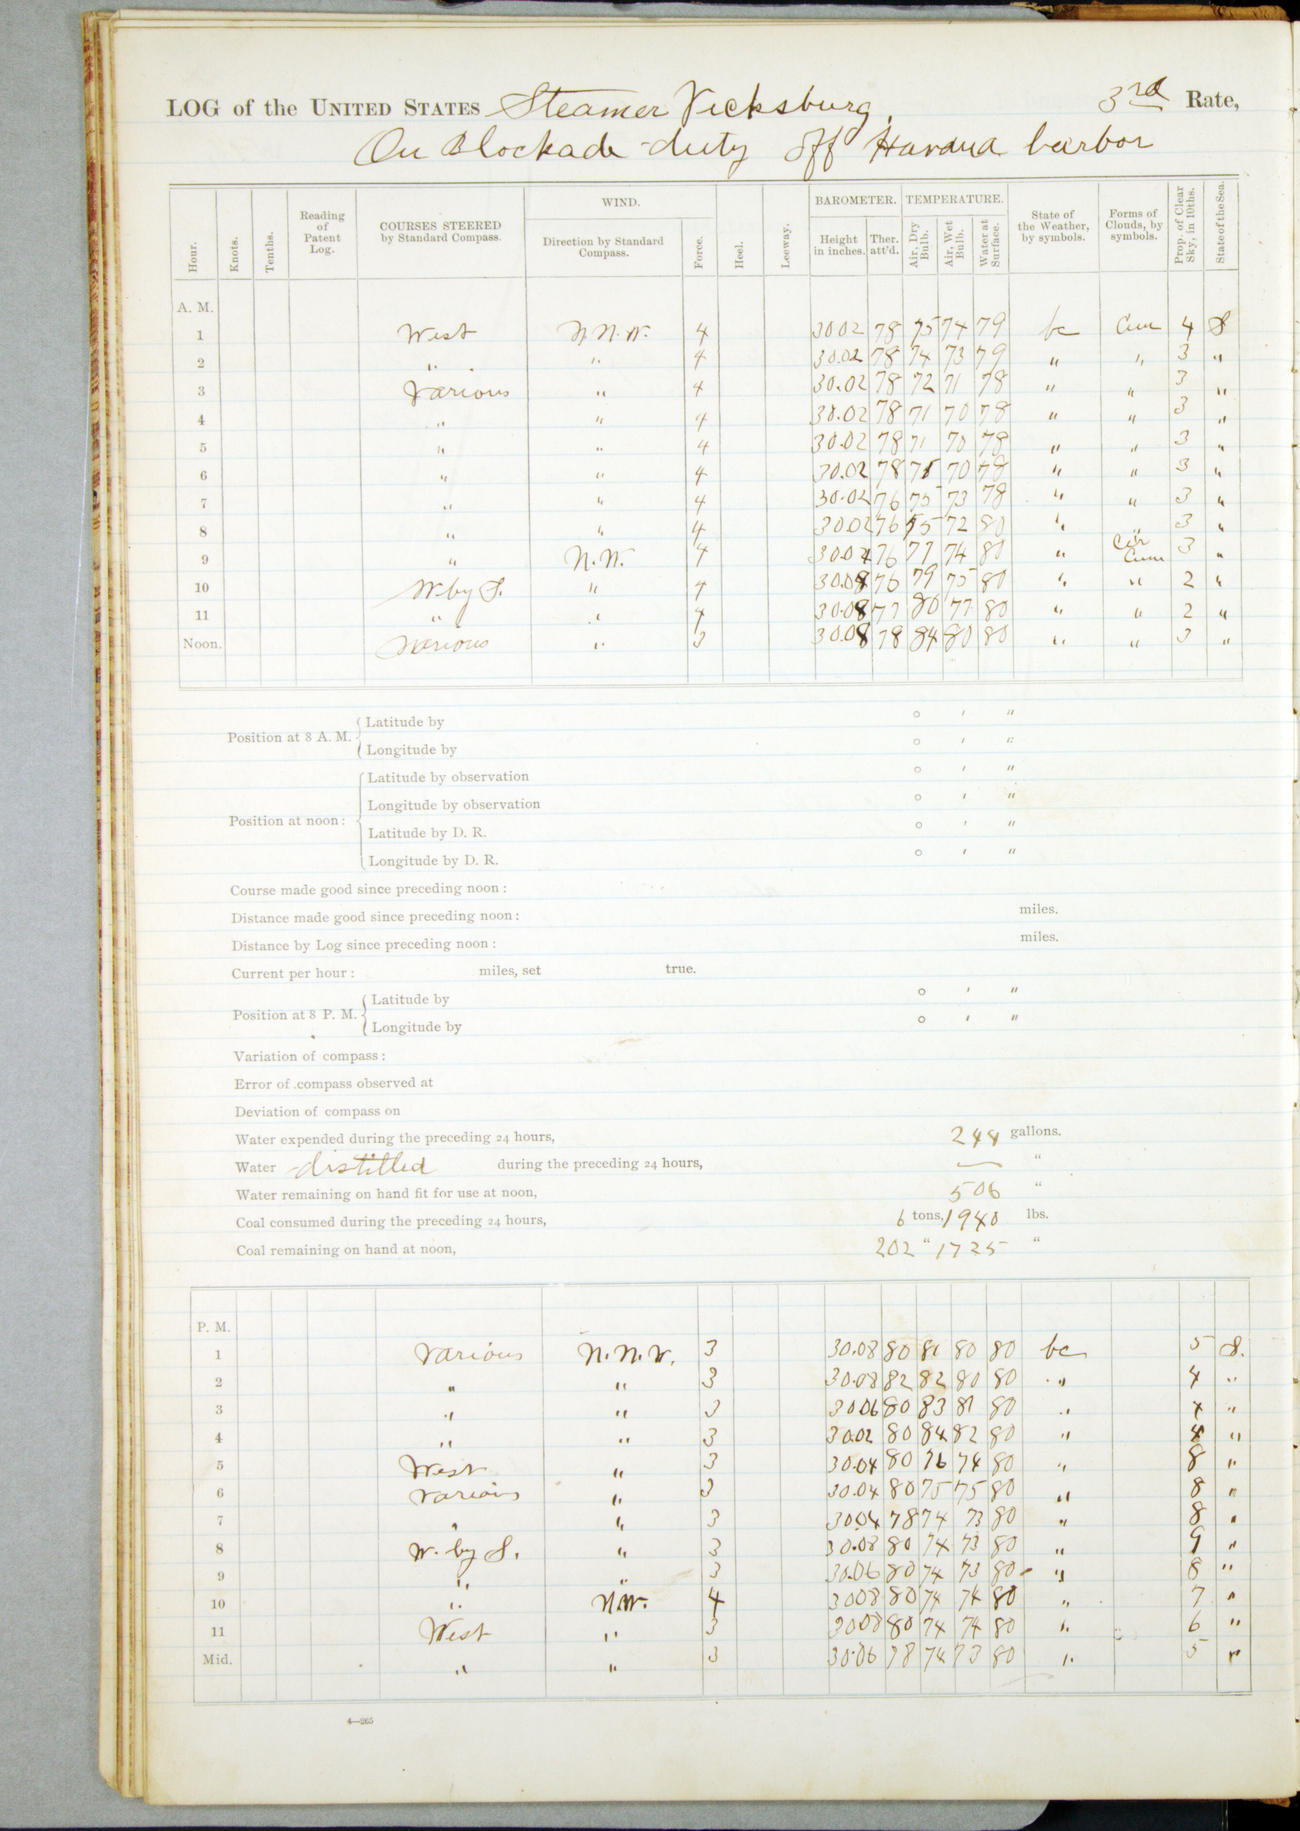 LOG of the UNITED STATES Steamer Vicksburg, 3rd Rate,
On Blockade duty off Havana harbor
Hour. Knots. Tenths. Reading of Patent Log. COURSES STEERED by Standard Compass. WIND. Direction by Standard Compass. Force. Heel. Leeway. BAROMETER. Height in inches. Ther. att'd. TEMPERATURE. Air, Dry Bulb. Air, Wet Bulb. Water at Surface. State of the Weather, by symbols. Forms of Clouds, by symbols. Prop. of Clear Sky, in 10ths. State of the Sea.
A. M.
1 West N.N.W. 4 30.02 78 75 74 79 bc Cum 4 S
2 " " 4 30.02 78 74 73 79 " " 3 "
3 Various " 4 30.02 78 72 71 78 " " 3 "
4 " " 4 30.02 78 71 70 78 " " 3 "
5 " " 4 30.02 78 71 70 78 " " 3 "
6 " " 4 30.02 78 71 70 78 " " 3 "
7 " " 4 30.02 76 75 73 78 " " 3 "
8 " " 4 30.02 76 75 72 80 " " 3 "
9 " N.W. 4 30.04 76 77 74 80 " Cir Cum 3 "
10 W. by S. " 4 30.08 76 79 75 80 " " 2 "
11 " " 4 30.08 77 80 77 80 " " 2 "
Noon. Various " 3 30.08 78 84 80 80 " " 3 "
Position at 8 A. M. Latitude by ° ' "
Longitude by ° ' "
Position at noon: Latitude by observation ° ' "
Longitude by observation ° ' "
Latitude by D. R. ° ' "
Longitude by D. R. ° ' "
Course made good since preceding noon:
Distance made good since preceding noon: miles.
Distance by Log since preceding noon: miles.
Current per hour: miles, set true.
Position at 8 P. M. Latitude by ° ' "
Longitude by ° ' "
Variation of compass:
Error of compass observed at
Deviation of compass on
Water expended during the preceding 24 hours, 244 gallons.
Water distilled during the preceding 24 hours, — "
Water remaining on hand fit for use at noon, 506 "
Coal consumed during the preceding 24 hours, 6 tons, 1940 lbs.
Coal remaining on hand at noon, 202 " 1725 "
P. M.
1 Various N.N.W. 3 30.08 80 81 80 80 bc 5 S.
2 " " 3 30.08 82 82 80 80 " 4 "
3 " " 3 30.06 80 83 81 80 " 4 "
4 " " 3 30.02 80 84 82 80 " 4 "
5 West " 3 30.04 80 76 74 80 " 8 "
6 Various " 3 30.04 80 75 75 80 " 8 "
7 " " 3 30.04 78 74 73 80 " 8 "
8 W. by S. " 3 30.08 80 74 73 80 " 9 "
9 " " 3 30.06 80 74 73 80 " 8 "
10 " N.W. 4 30.08 80 74 74 80 " 7 "
11 West " 3 30.08 80 74 74 80 " 6 "
Mid. " " 3 30.06 78 74 73 80 " 5 "
4—265